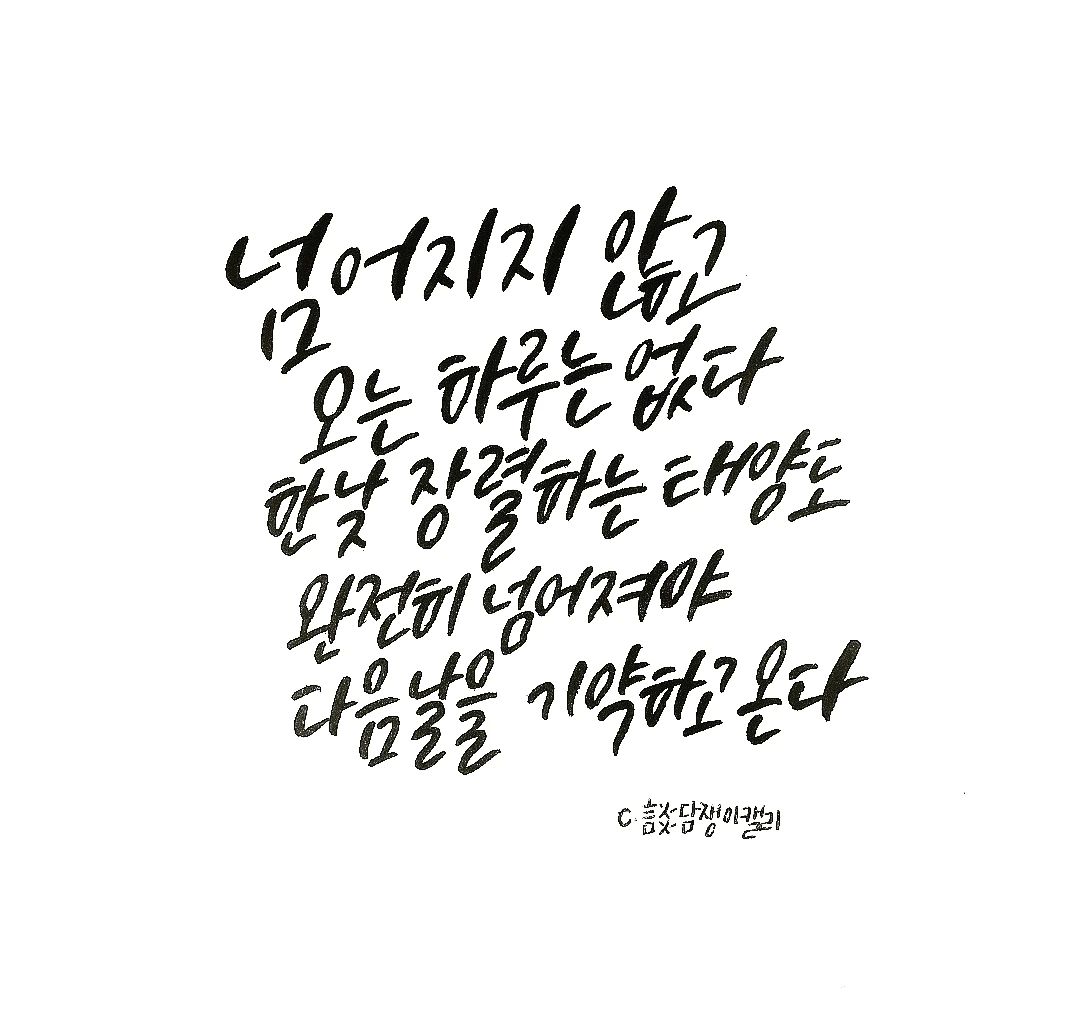 넘어지지 않고
오는 하루는 없다
한낮 장렬하는 태양도
완전히 넘어져야
다음날을 기약하고 온다
C. 談담쟁이캘리